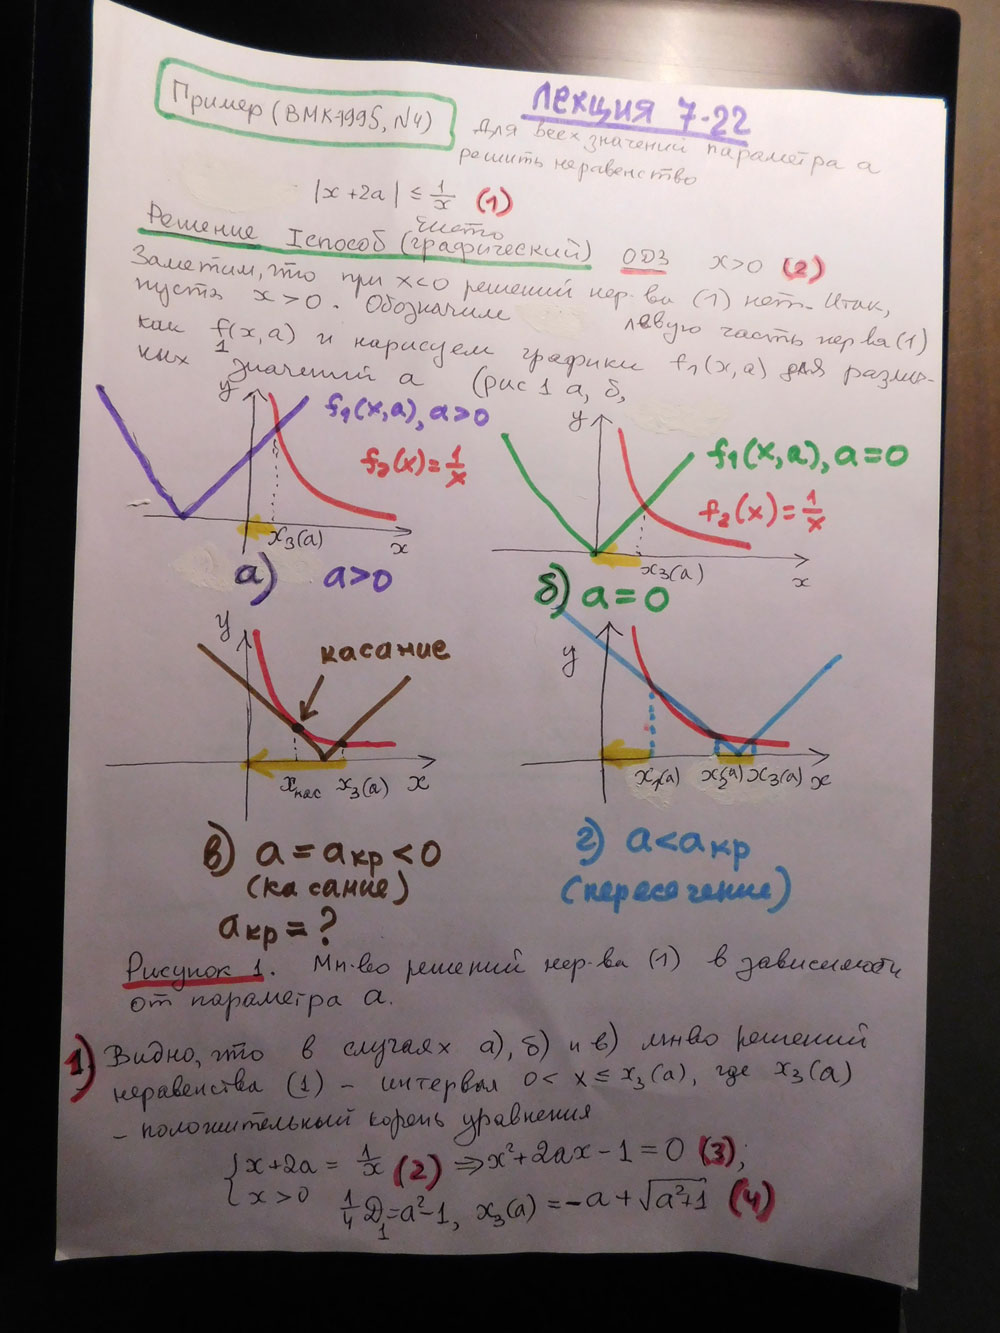 Лекция 7-22
Пример (ВМК-1995, N4)
Для всех значений параметра а
решить неравенство
|x + 2a| ≤ 1/x (1)
чисто
Решение I способ (графический) ОДЗ x>0 (2)
Заметим, что при x<0 решений нер-ва (1) нет. Итак,
пусть x>0. Обозначим левую часть нер-ва (1)
как f₁(x,a) и нарисуем графики f₁(x,a) для различ-
ных значений а (рис 1 а, б,
y
f₁(x,a), a>0
f₂(x)=1/x
x₃(a)
x
а) a>0
y
f₁(x,a), a=0
f₂(x)=1/x
x₃(a)
x
б) a=0
y
касание
xкас x₃(a) x
в) a=aкр<0
(касание)
aкр=?
y
x₁(a) x₂(a) x₃(a) x
г) a<aкр
(пересечение)
Рисунок 1. Мн-во решений нер-ва (1) в зависимости
от параметра а.
1) Видно, что в случаях а), б) и в) мн-во решений
неравенства (1) – интервал 0< x ≤ x₃(a), где x₃(a)
– положительный корень уравнения
{ x+2a = 1/x (2) ⇒ x²+2ax-1=0 (3);
{ x>0 1/4 D₁=a²-1, x₃(a) = -a+√(a²+1) (4)